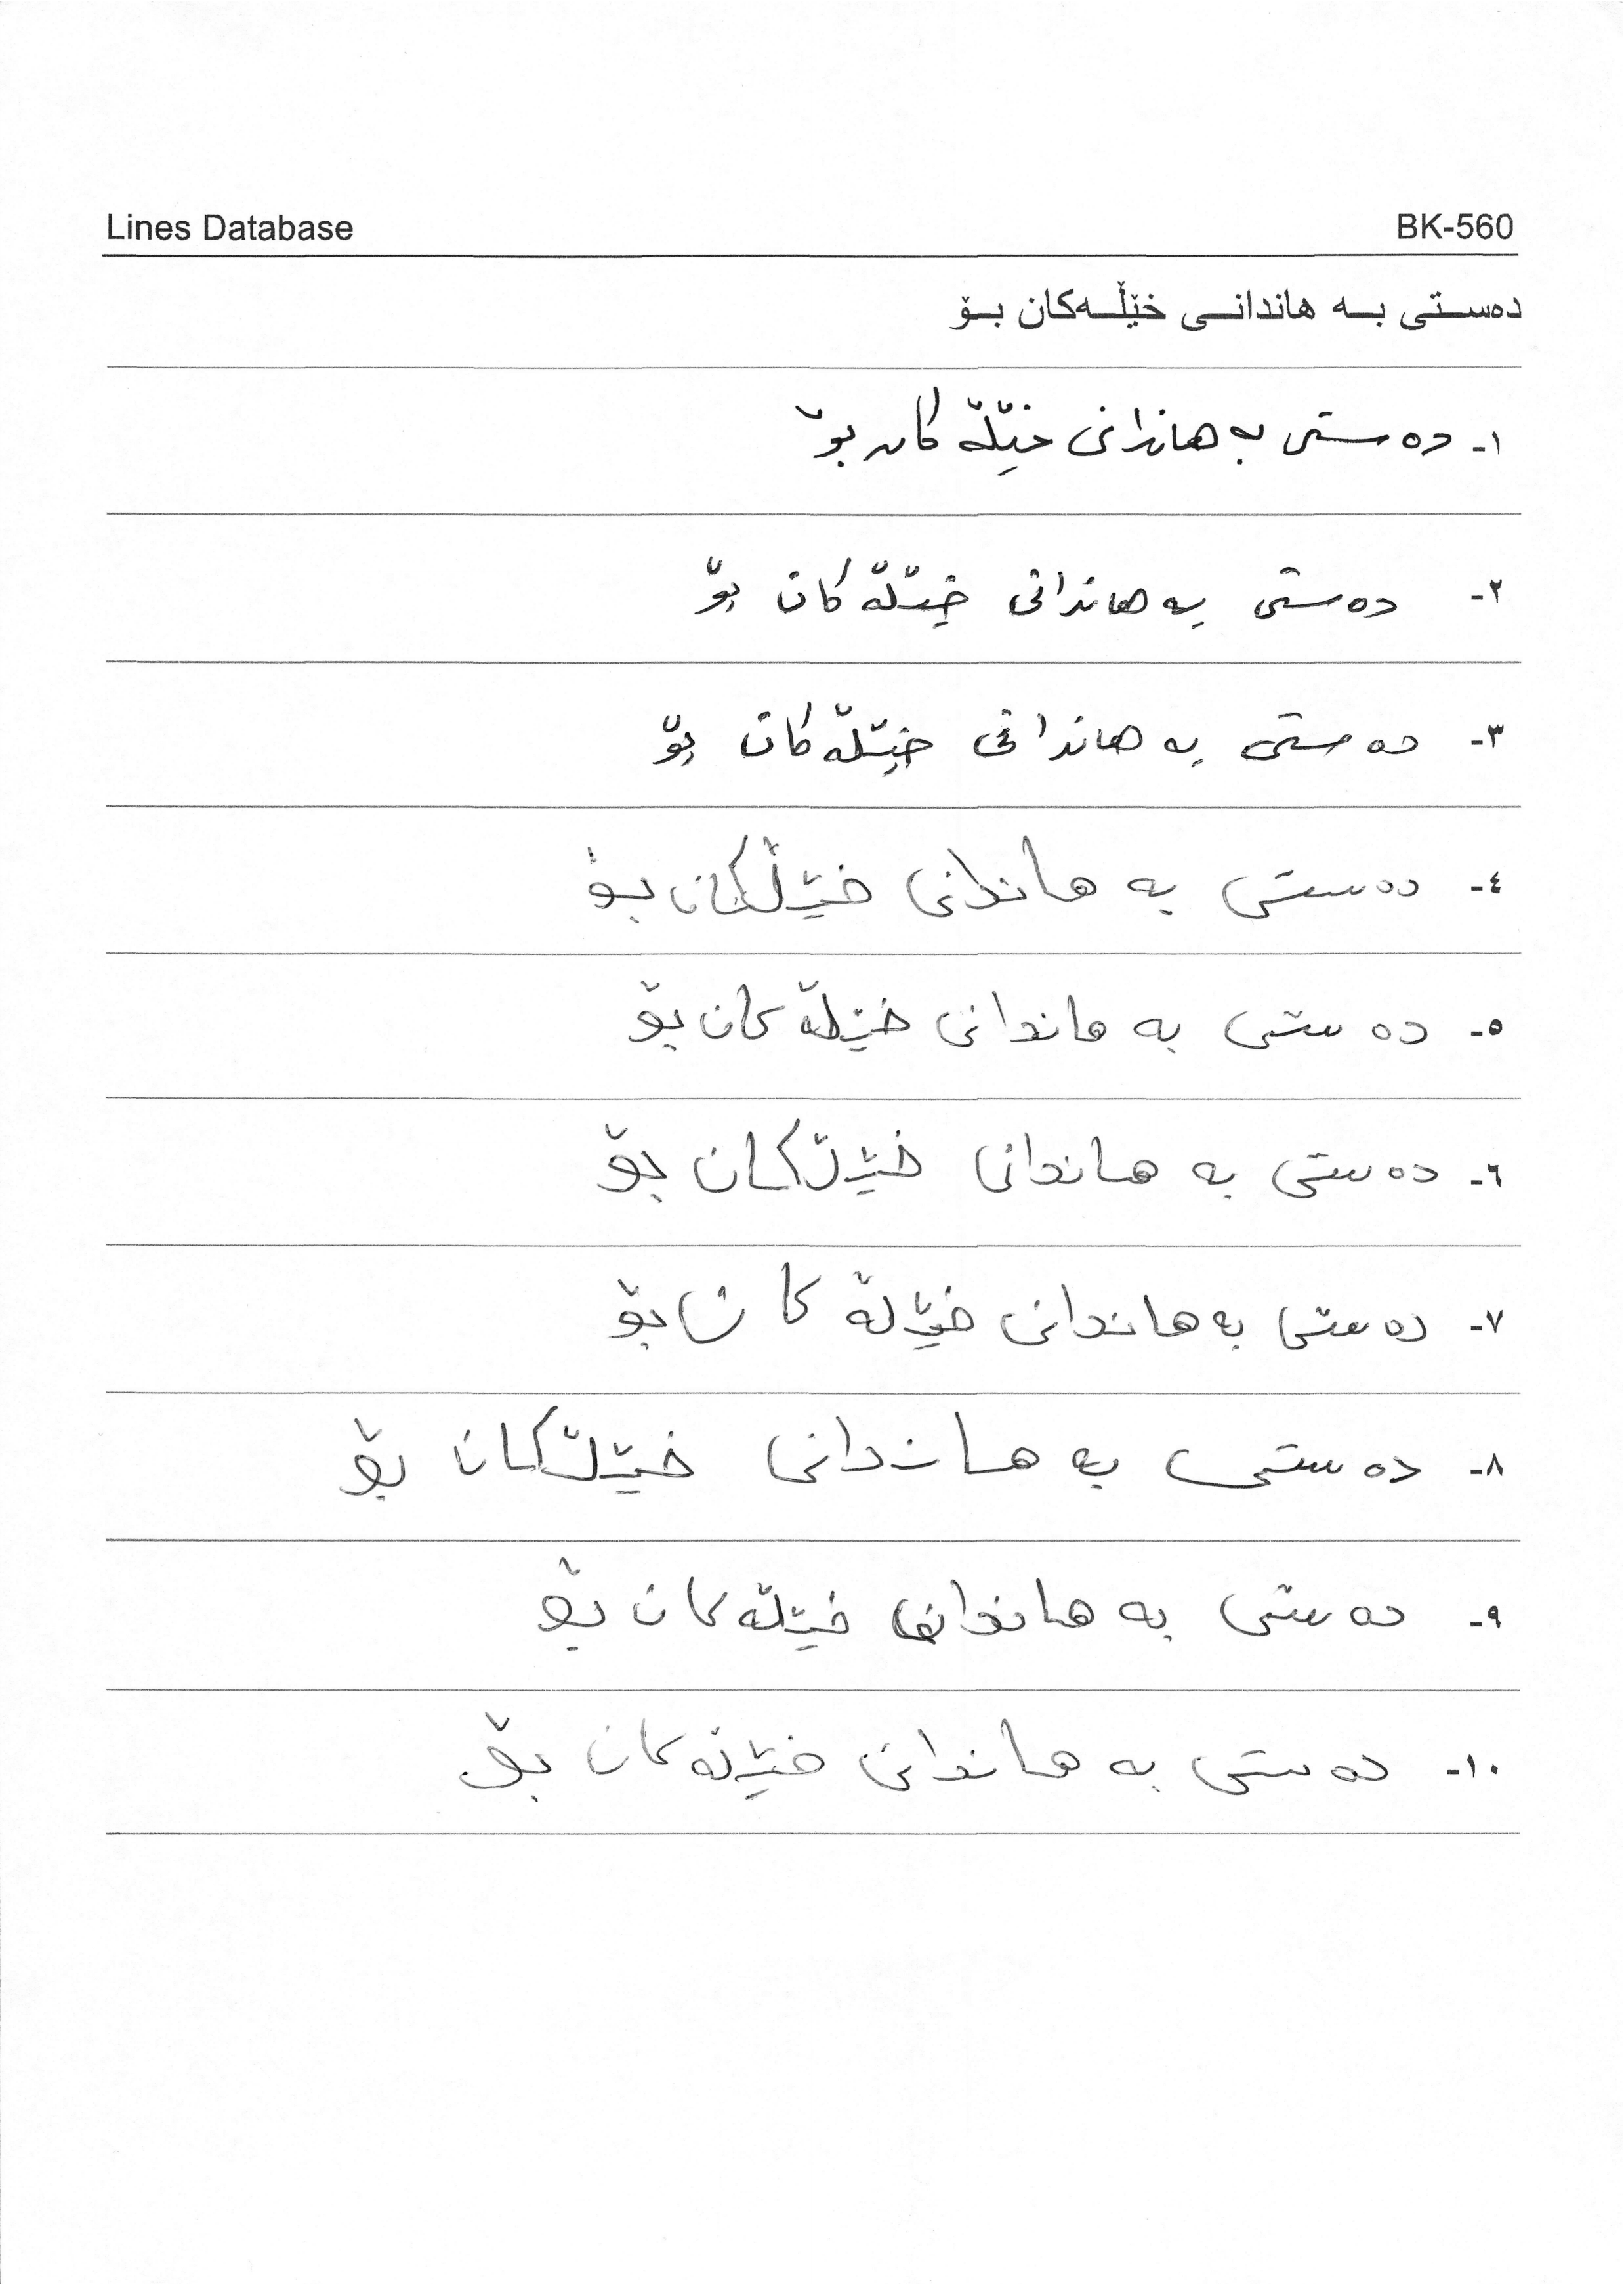 Lines Database BK-560
دەستی بە هاندانی خێڵەکان بۆ
١- دەستی بە هاندانی خێڵەکان بۆ
٢- دەستی بە هاندانی خێڵەکان بۆ
٣- دەستی بە هاندانی خێڵەکان بۆ
٤- دەستی بە هاندانی خێڵکان بۆ
٥- دەستی بە هاندانی خێڵەکان بۆ
٦- دەستی بە هاندانی خێڵکان بۆ
٧- دەستی بە هاندانی خێڵەکان بۆ
٨- دەستی بە هاندانی خێڵکان بۆ
٩- دەستی بە هاندانی خێڵەکان بۆ
١٠- دەستی بە هاندانی خێڵەکان بۆ